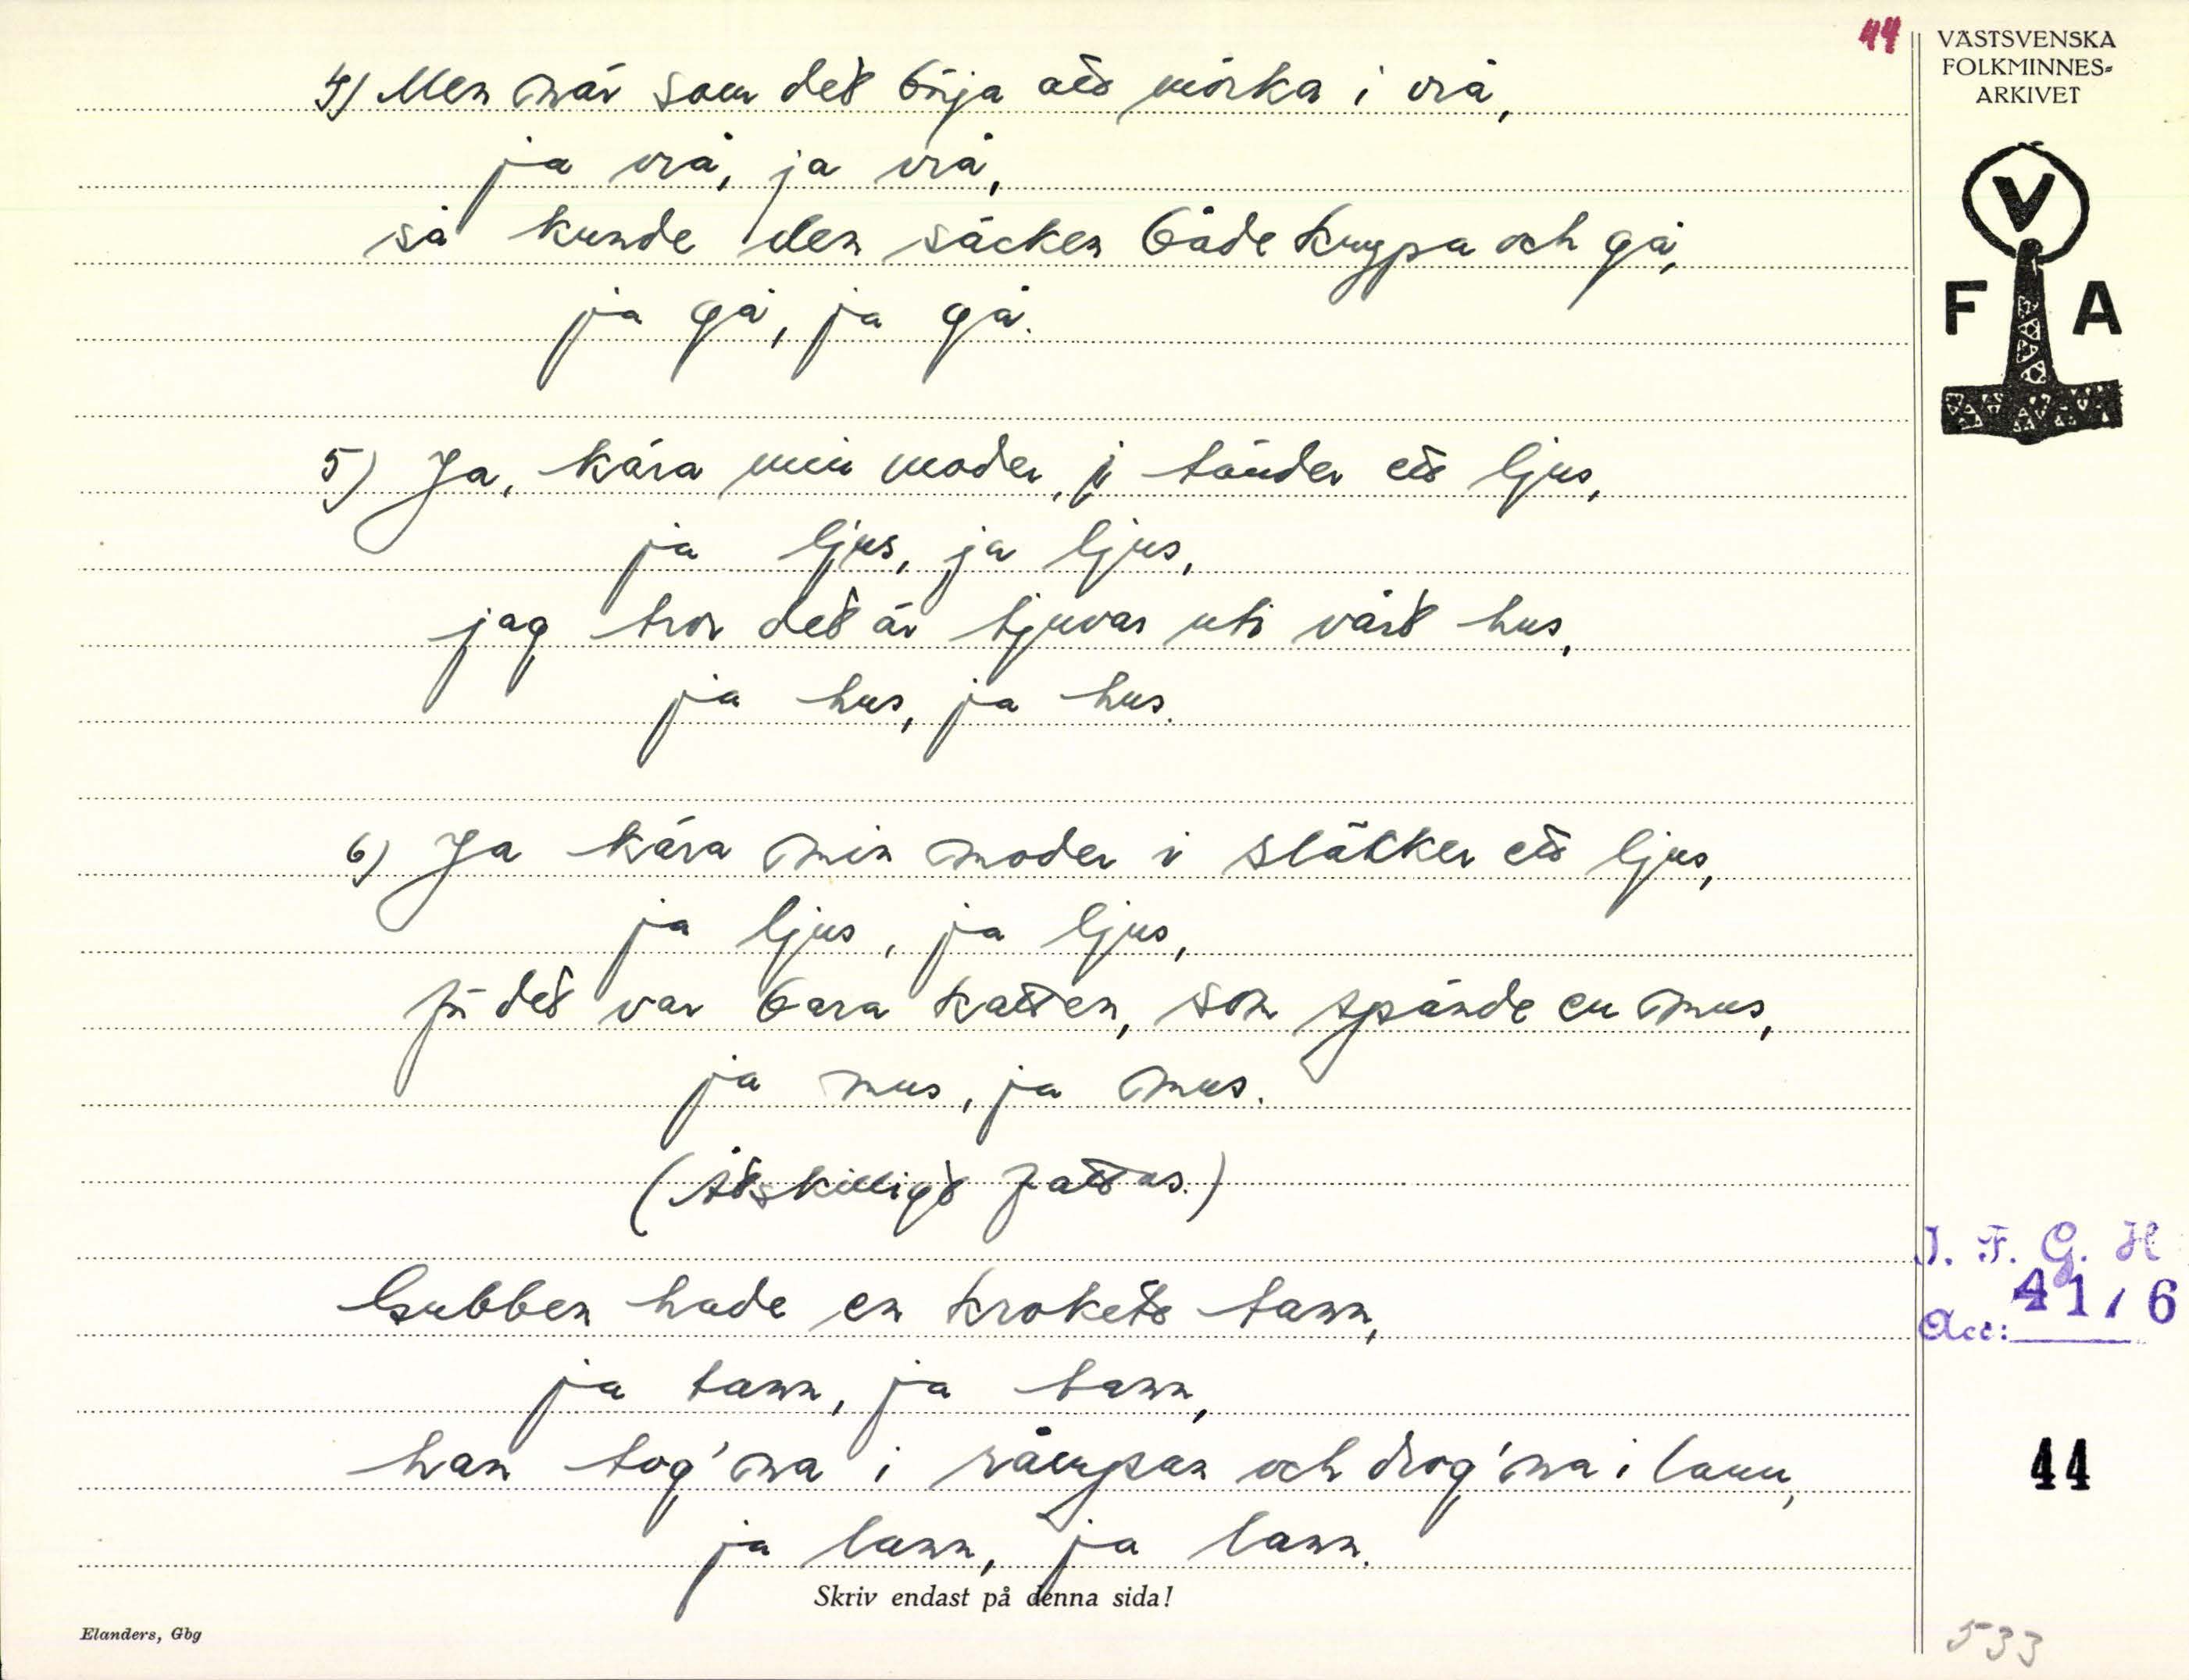 44
VÄSTSVENSKA
FOLKMINNES-
ARKIVET
V
F A
4) Men när som det börja att mörka i vrå,
ja vrå, ja vrå,
så kunde den säcken både krypa och gå,
ja gå, ja gå.
5) Ja, kära min moder, i tänder ett ljus,
ja ljus, ja ljus,
jag tror det är tjuvar uti vårt hus,
ja hus, ja hus.
6) Ja kära min moder i släkker ett ljus,
ja ljus, ja ljus,
för det var bara katten, som spände en mus,
ja mus, ja mus.
(Åtskilligt fattas.)
Gubben hade en krokett tann,
ja tann, ja tann,
han tog'na i råmpan och drog'na i lann,
ja lann, ja lann.
I. F. G. H
Acc: 4176
44
Skriv endast på denna sida!
Elanders, Gbg
533